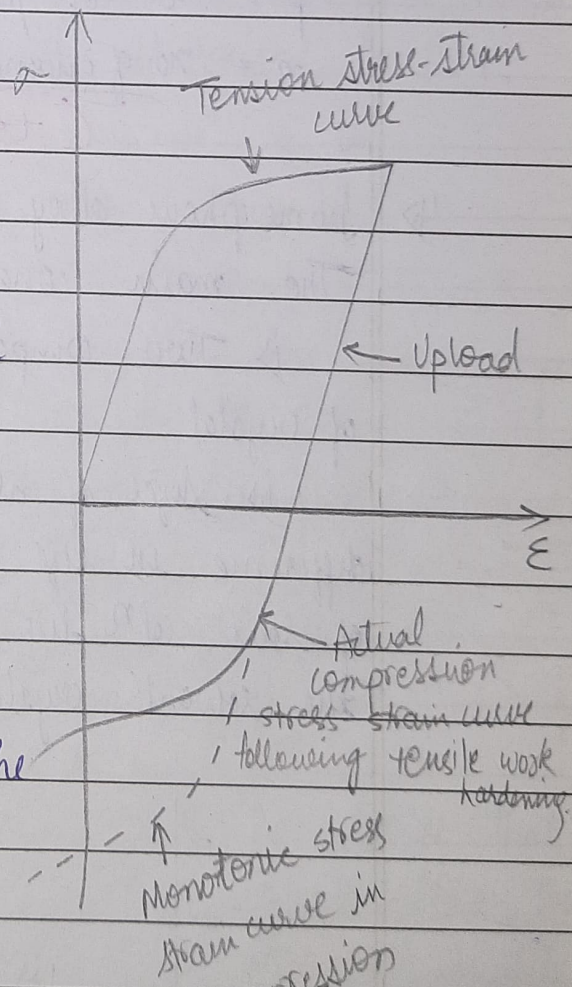 σ
Tension stress-strain
curve
Upload
ε
Actual
compression
stress-strain curve
following tensile work
hardening.
Monotonic stress
strain curve in